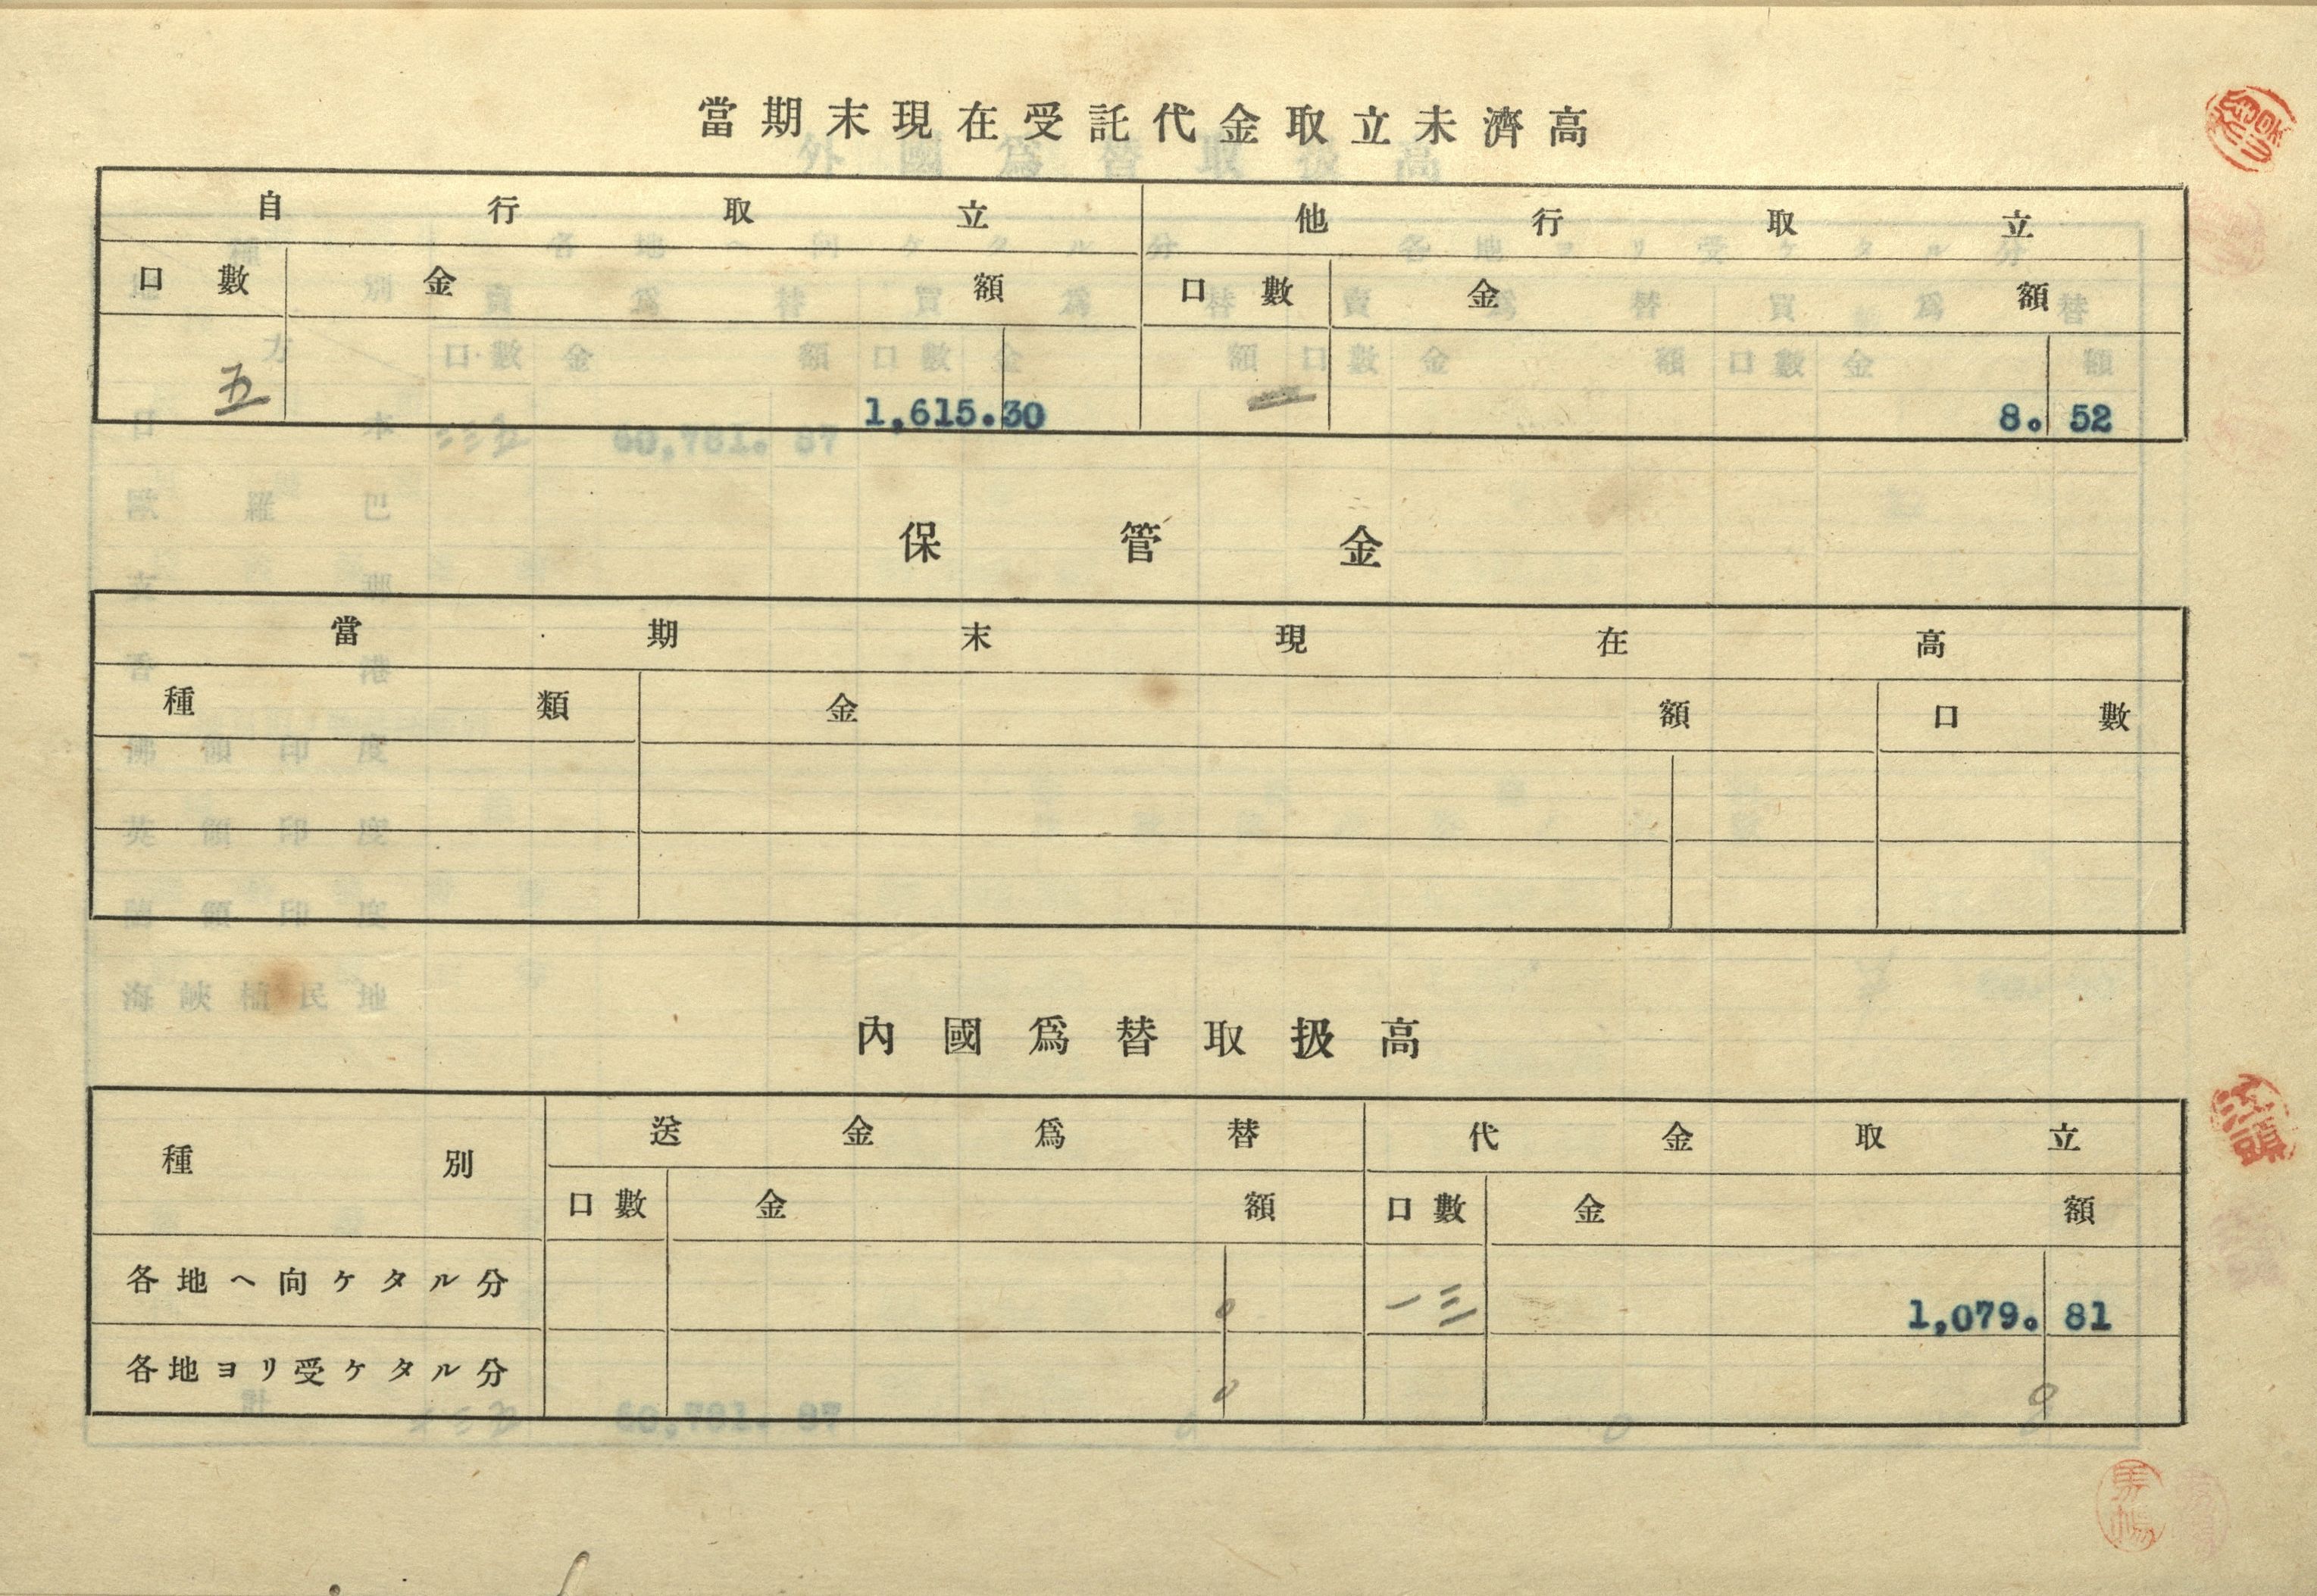 當期末現在受託代金取立未濟高
自行取立 他行取立
口數 金額 口數 金額
五 1,615.30 一 8.52
保管金
當期末現在高
種類 金額 口數
內國爲替取扱高
種別 送金爲替 代金取立
口數 金額 口數 金額
各地ヘ向ケタル分 0 一三 1,079.81
各地ヨリ受ケタル分 0 0